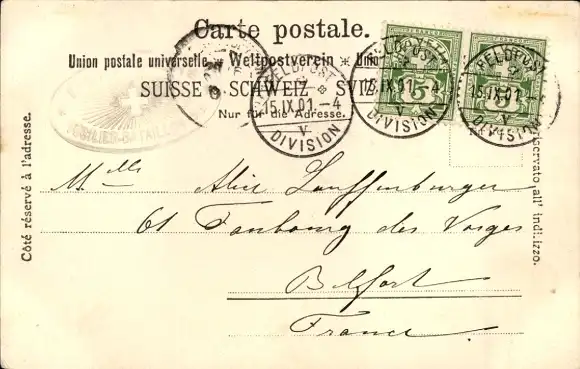 Carte postale.
Union postale universelle. Weltpostverein Unio
SUISSE SCHWEIZ SVIZ
Nur für die Adresse.
Côté réservé à l'adresse.
riservato all' indirizzo.
FELDPOST
15.IX.01.-4
V.
DIVISION
FELDPOST
15.IX.01.-4
V.
DIVISION
FELDPOST
15.IX.01.
V.
DIVISION
5
5
Mlle Alice Lauffenburger
61 Faubourg des Vosges
Belfort
France